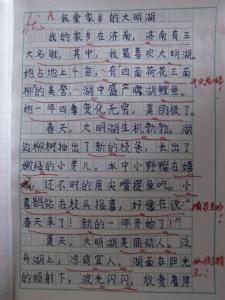 优 A 我爱家乡的大明湖
我的家乡在济南，济南有三
大名胜，其中，我最喜欢大明湖。
她占地上千亩，有四面荷花三面
柳的美誉，湖中盛产露湖鲤鱼。
她一年四季变化无穷，美丽极了。
春天，大明湖生机勃勃。湖
边柳树抽出了新的枝条，长出了
嫩绿的小芽儿。水中小野鸭在嬉
戏，还不时的用尖嘴捉鱼吃。小
喜鹊站在枝头报喜，好像在说：“
春天来了！新的一年开始了！”
夏天，大明湖美丽动人。泛
舟湖上，凉爽宜人。湖面在阳光
的眼射下，波光闪闪，欣赏着岸